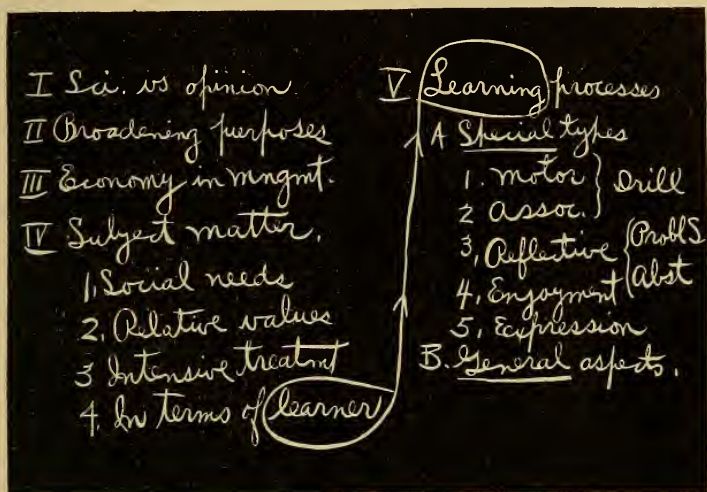 I Sci. vs opinion
II Broadening purposes
III Economy in mngmt.
IV Subject matter.
1, Social needs
2. Relative values
3 Intensive treatmt
4. In terms of learner
V Learning processes
A Special types
1. Motor
2 Assoc. } Drill
3, Reflective { Probl S
Abst
4. Enjoyment
5. Expression
B. General aspects.